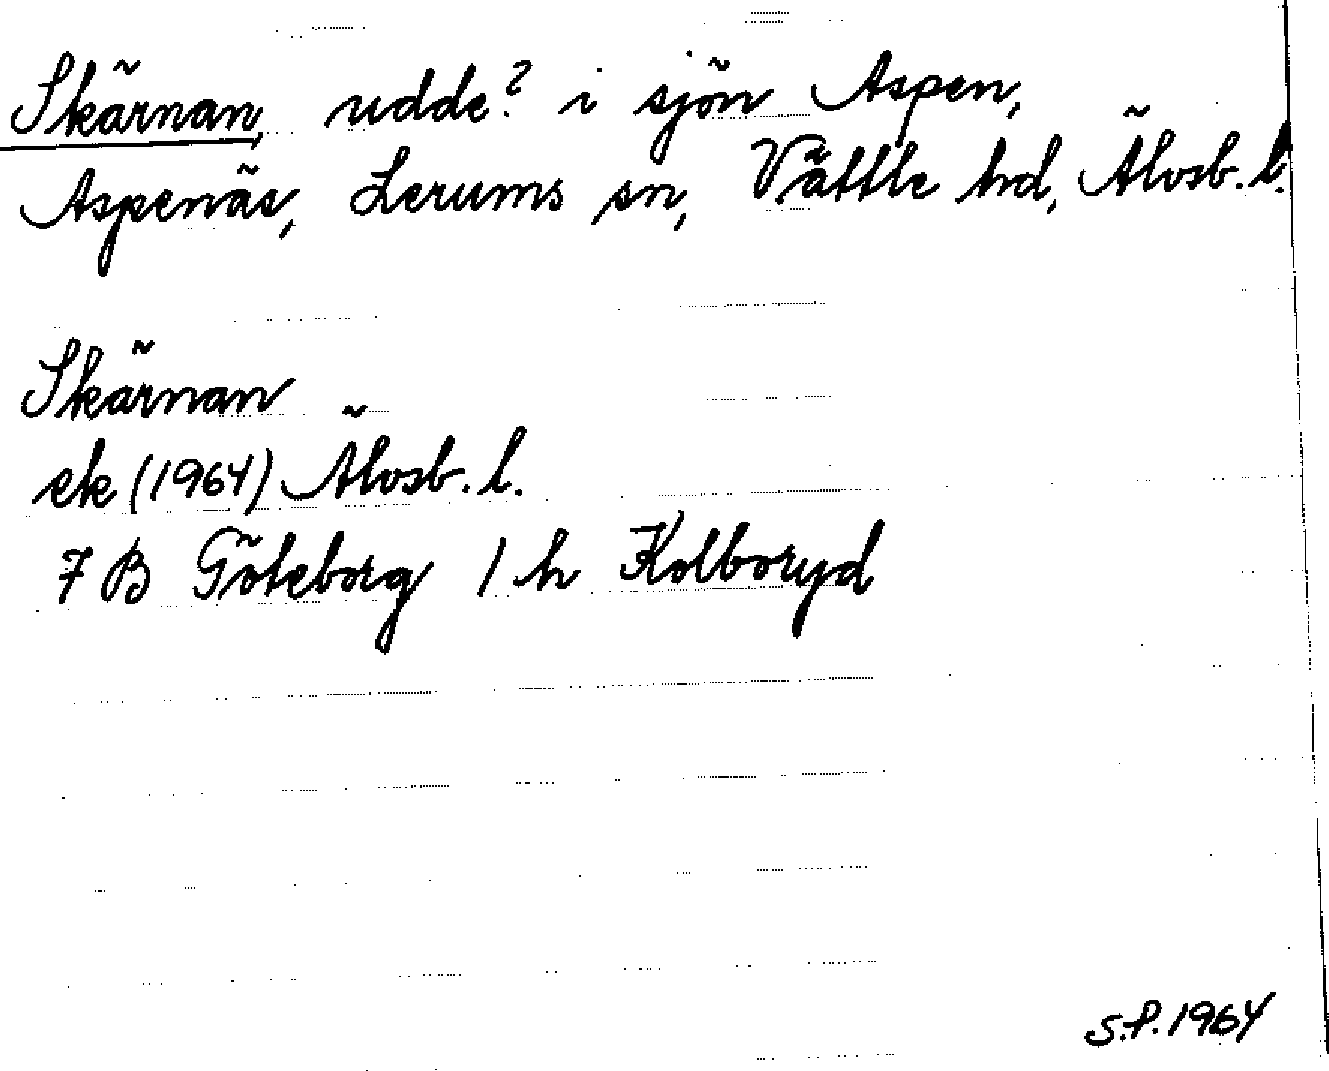 Skärnan, udde? i sjön Aspen,
Aspenäs, Lerums sn, Vättle hd, Älvsb. l.
Skärnan
ek (1964) Älvsb. l.
7 B Göteborg 1 h Kolboryd
S.P. 1964